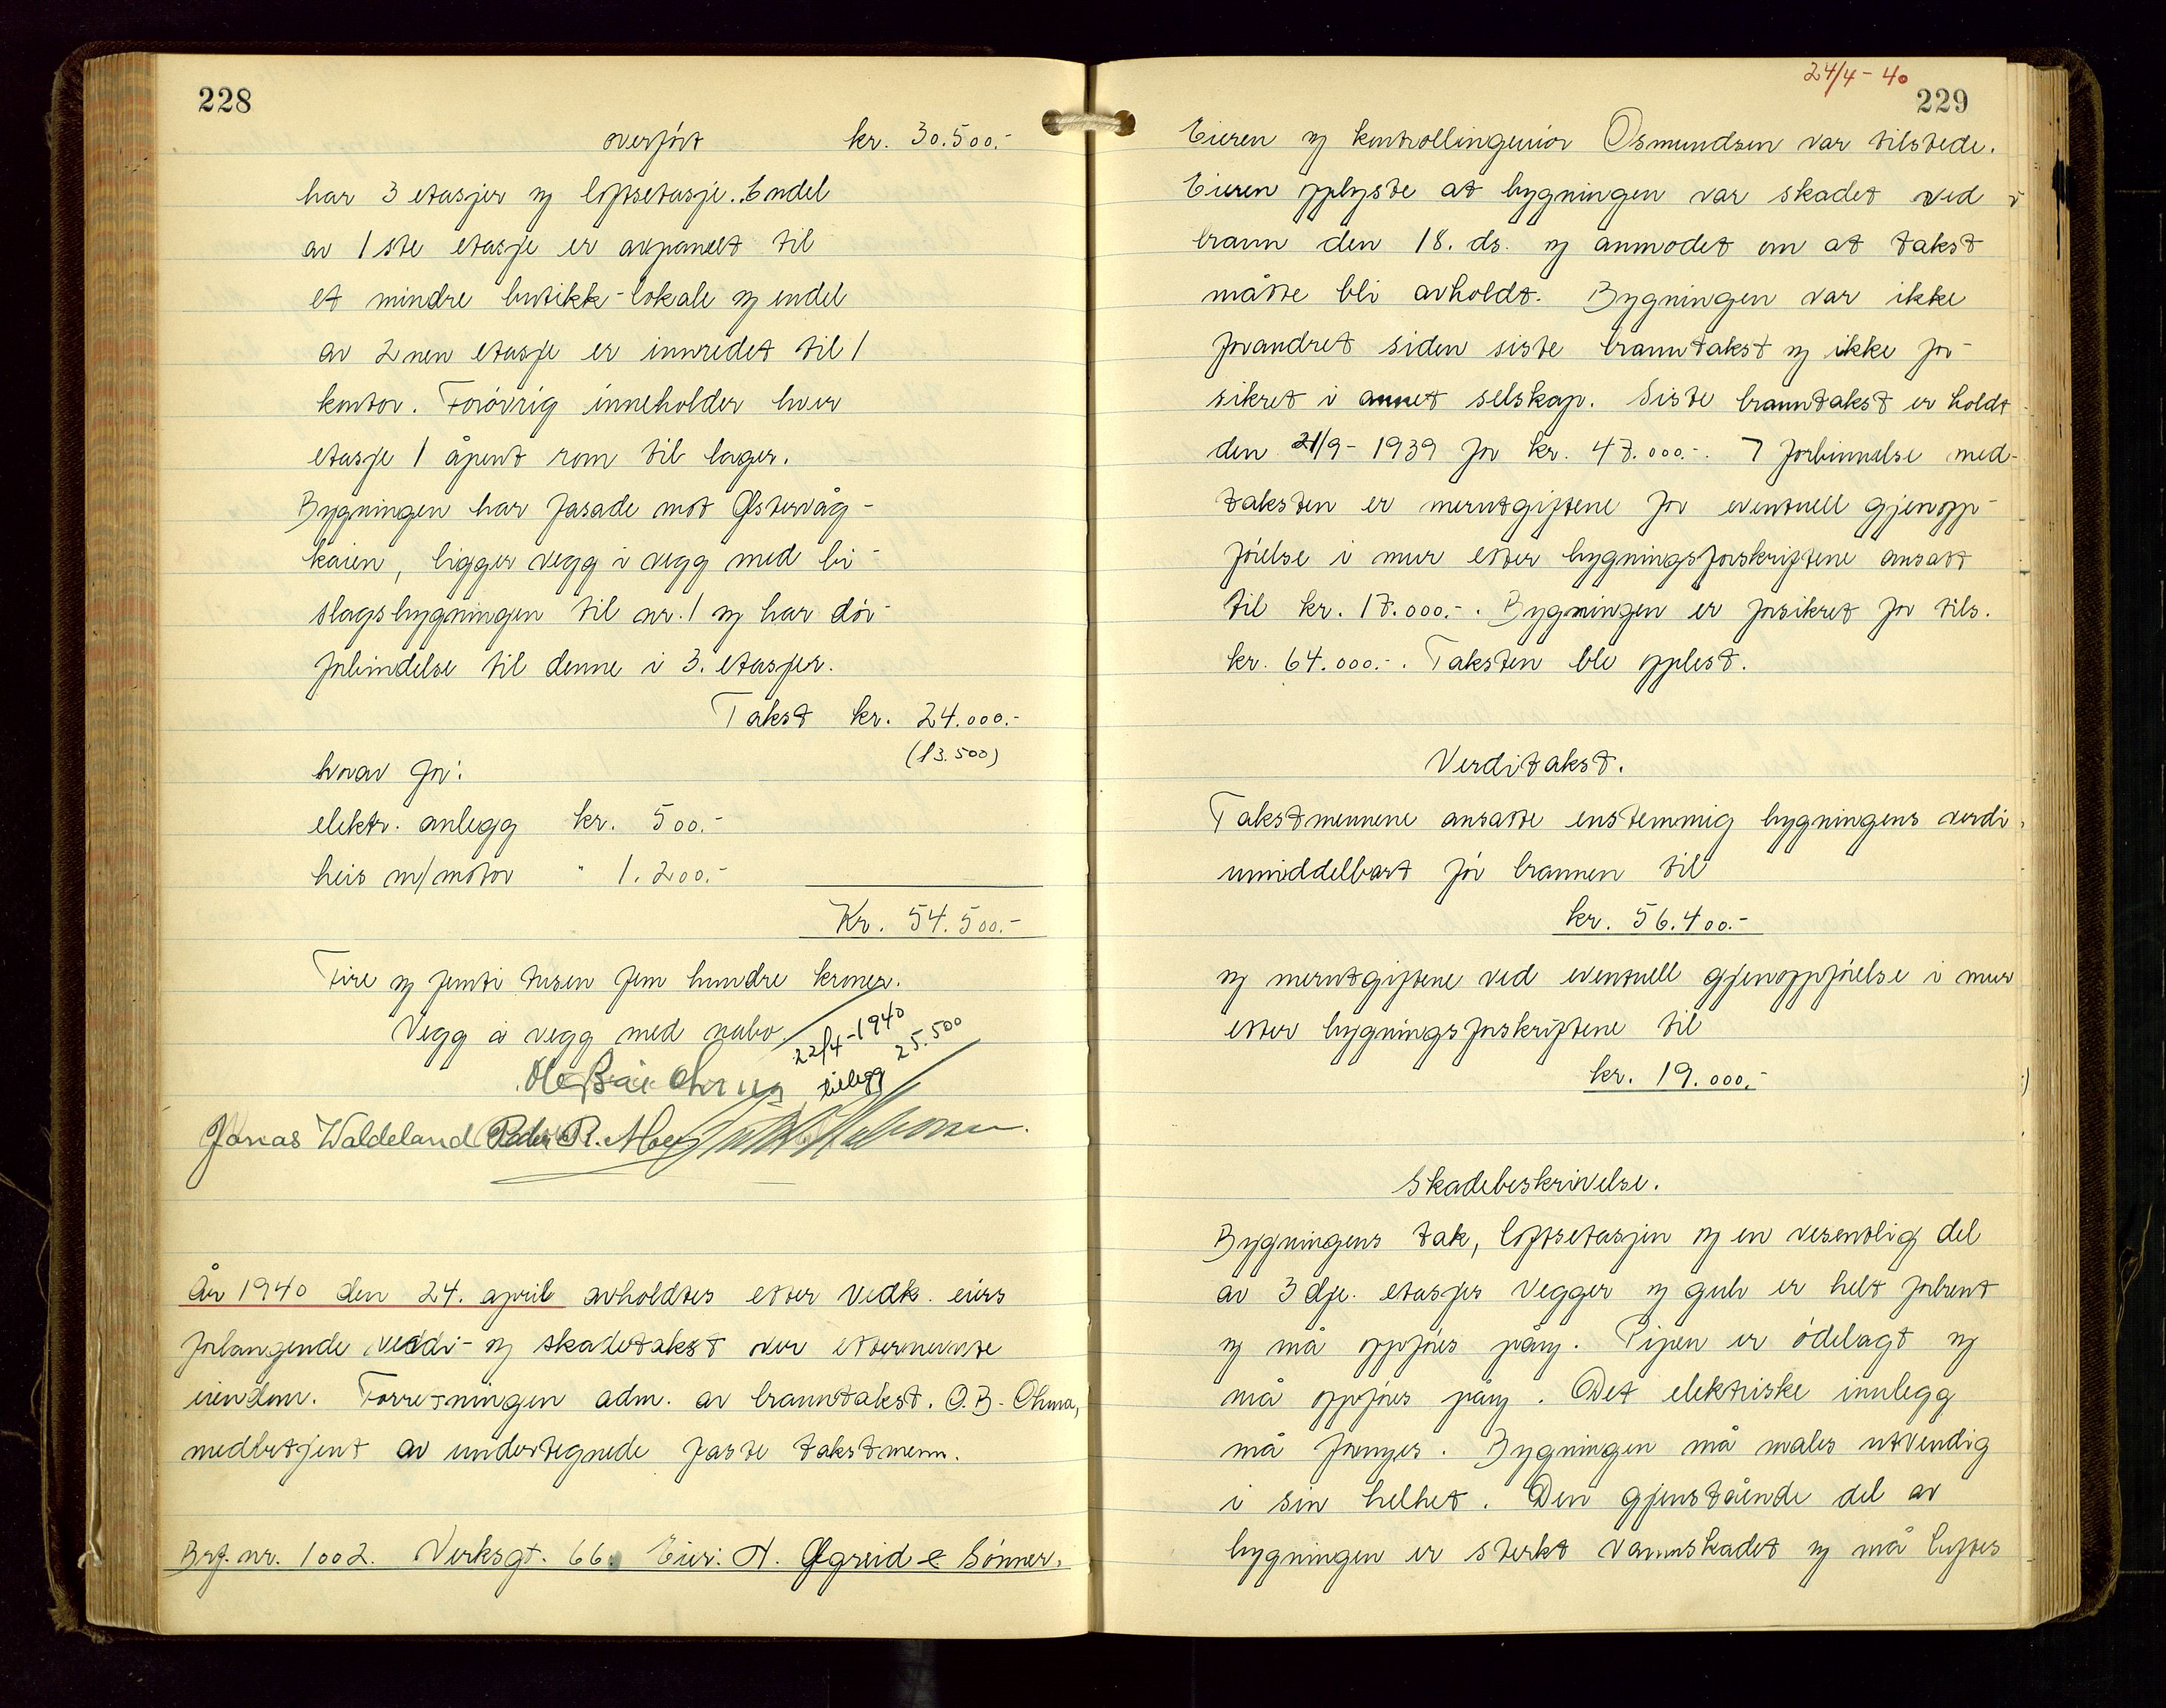 228
overført kr. 30.500.-
har 3 etasjer og loftsetasje. Endel
av 1ste etasje er avpanelt til
et mindre butikk-lokale og endel
av 2nen etasje er innredet til 1
kontor. Forøvrig inneholder hver
etasje 1 åpent rom til lager.
Bygningen har fasade mot Østervåg-
kaien, ligger vegg i vegg med bi-
slagsbygningen til nr. 1 og har dør-
forbindelse til denne i 3. etasjer.
Takst kr. 24.000.-
(13.500)
hvorav for:
elektr. anlegg kr. 500.-
heis m/motor " 1.200.-
Kr. 54.500.-
Fire og femti tusen fem hundre kroner.
Vegg i vegg med nabo.
22/4-1940
tillegg 25.500
Jonas Waldeland Peder R.
År 1940 den 24. april avholdtes etter vedk. eiers
forlangende verdi- og skadetakst over etternevnte
eiendom. Forretningen adm. av branntakst. O.B. Ohma,
medbetjent av undertegnede faste takstmenn.
Brf. nr. 1002. Verksgt. 66. Eier: A. Øgreid & Sønner.
24/4-40
229
Eieren og kontrollingeniør Osmundsen var tilstede.
Eieren opplyste at bygningen var skadet ved
brann den 18. ds. og anmodet om at takst
måtte bli avholdt. Bygningen var ikke
forandret siden siste branntakst og ikke for-
sikret i annet selskap. Siste branntakst er holdt
den 21/9-1939 for kr. 47.000.-. I forbinnelse med
taksten er merutgiftene for eventuell gjenopp-
førelse i mur etter bygningsforskriftene ansatt
til kr. 17.000.-. Bygningen er forsikret for tils.
kr. 64.000.-. Taksten ble opplest.
Verditakst.
Takstmennene ansatte enstemmig bygningens verdi
umiddelbart før brannen til
kr. 56.400.-
og merutgiftene ved eventuell gjenoppførelse i mur
etter bygningsforskriftene til
kr. 19.000.-
Skadebeskrivelse.
Bygningens tak, loftsetasjen og en vesentlig del
av 3dje. etasjes vegger og gulv er helt forbrent
og må oppføres påny. Pipen er ødelagt og
må oppføres påny. Det elektriske innlegg
må fornyes. Bygningen må males utvendig
i sin helhet. Den gjenstående del av
bygningen er sterkt vannskadet og må luftes